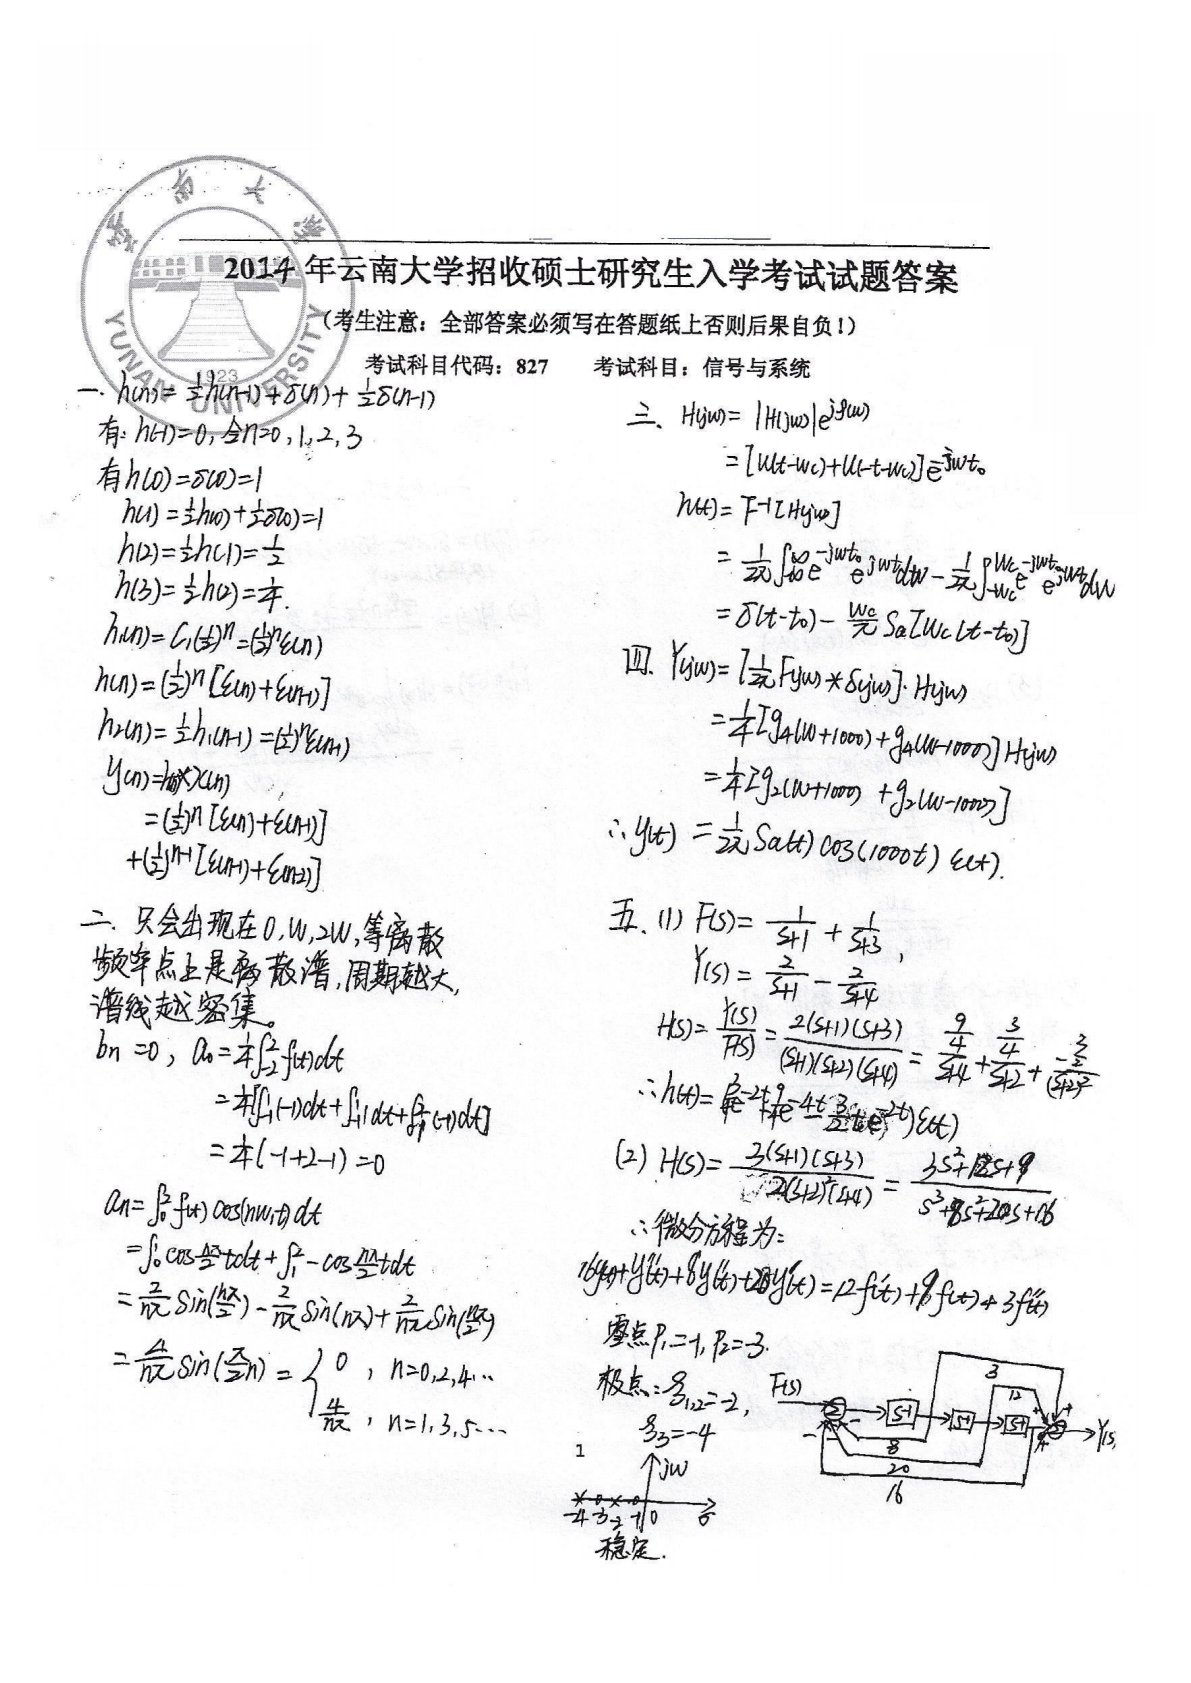 云南大学
YUNNAN UNIVERSITY
1923
2014年云南大学招收硕士研究生入学考试试题答案
（考生注意：全部答案必须写在答题纸上否则后果自负！）
考试科目代码：827 考试科目：信号与系统
一. h(n) = ½h(n-1)+δ(n)+½δ(n-1)
有: h(-1)=0, 令n=0,1,2,3
有h(0)=δ(0)=1
h(1)=½h(0)+½δ(0)=1
h(2)=½h(1)=½
h(3)=½h(2)=¼.
h₁(n)=C₁(½)ⁿ=(½)ⁿε(n)
h(n)=(½)ⁿ[ε(n)+ε(n-1)]
h₂(n)=½h₁(n-1)=(½)ⁿε(n-1)
y(n)=h(n)*x(n)
=(½)ⁿ[ε(n)+ε(n-1)]
+(½)ⁿ⁻¹[ε(n-1)+ε(n-2)]
二. 只会出现在0,W,2W,等离散
频率点上是离散谱,周期越大,
谱线越密集。
bn=0, a₀=¼∫₋₂²f(t)dt
=¼[∫₋₂⁻¹(-1)dt+∫₋₁¹1dt+∫₁²(-1)dt]
=¼(-1+2-1)=0
an=∫₀²f(t)cos(nw₁t)dt
=∫₀¹cos(nπ/2)tdt+∫₁²-cos(nπ/2)tdt
=2/(nπ) Sin(nπ/2)-2/(nπ) Sin(nπ)+2/(nπ) Sin(nπ/2)
=4/(nπ) Sin(π/2 n)={0, n=0,2,4…
4/(nπ), n=1,3,5…
三、H(jw)=|H(jw)|e^{jφ(w)}
=[u(t-wc)+u(-t-wc)]e^{-jwt₀}
h(t)=F⁻¹[H(jw)]
=1/(2π)∫₋∞^∞ e^{-jwt₀}e^{jwt}dw-1/(2π)∫₋wc^wc e^{-jwt₀}e^{jwt}dw
=δ(t-t₀)-wc/π Sa[wc(t-t₀)]
四. Y(jw)=[1/(2π) F(jw)*S(jw)]·H(jw)
=¼[g₄(w+1000)+g₄(w-1000)]H(jw)
=¼[g₂(w+1000)+g₂(w-1000)]
∴y(t)=1/(2π) Sa(t)cos(1000t)ε(t).
五. (1) F(s)=1/(s+1)+1/(s+3),
Y(s)=2/(s+1)-2/(s+4)
H(s)=Y(s)/F(s)=2(s+1)(s+3)/(s+1)(s+2)(s+4)=(9/4)/(s+4)+(3/4)/(s+2)+(-3/2)/(s+2)²
(2) H(s)=3(s+1)(s+3)/2(s+2)²(s+4)=(3s²+12s+9)/(s³+8s²+20s+16)
∴微分方程为:
16y(t)+y'''(t)+8y''(t)+20y'(t)=12f'(t)+9f(t)+3f''(t)
零点P₁=-1, P₂=-3.
极点:ξ₁,₂=-2,
ξ₃=-4
F(s) Σ s⁻¹ s⁻¹ s⁻¹ Σ Y(s)
3
12
9
8
20
16
jw
-4 -3 -2 -1 0 σ
稳定.
1